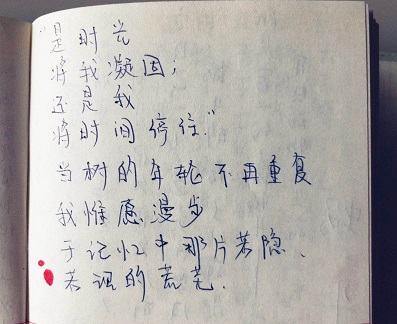 “是时光
将我凝固；
还是我
将时间停住.”
当树的年轮不再重复
我惟愿漫步
于记忆中那片若隐、
若现的荒芜.